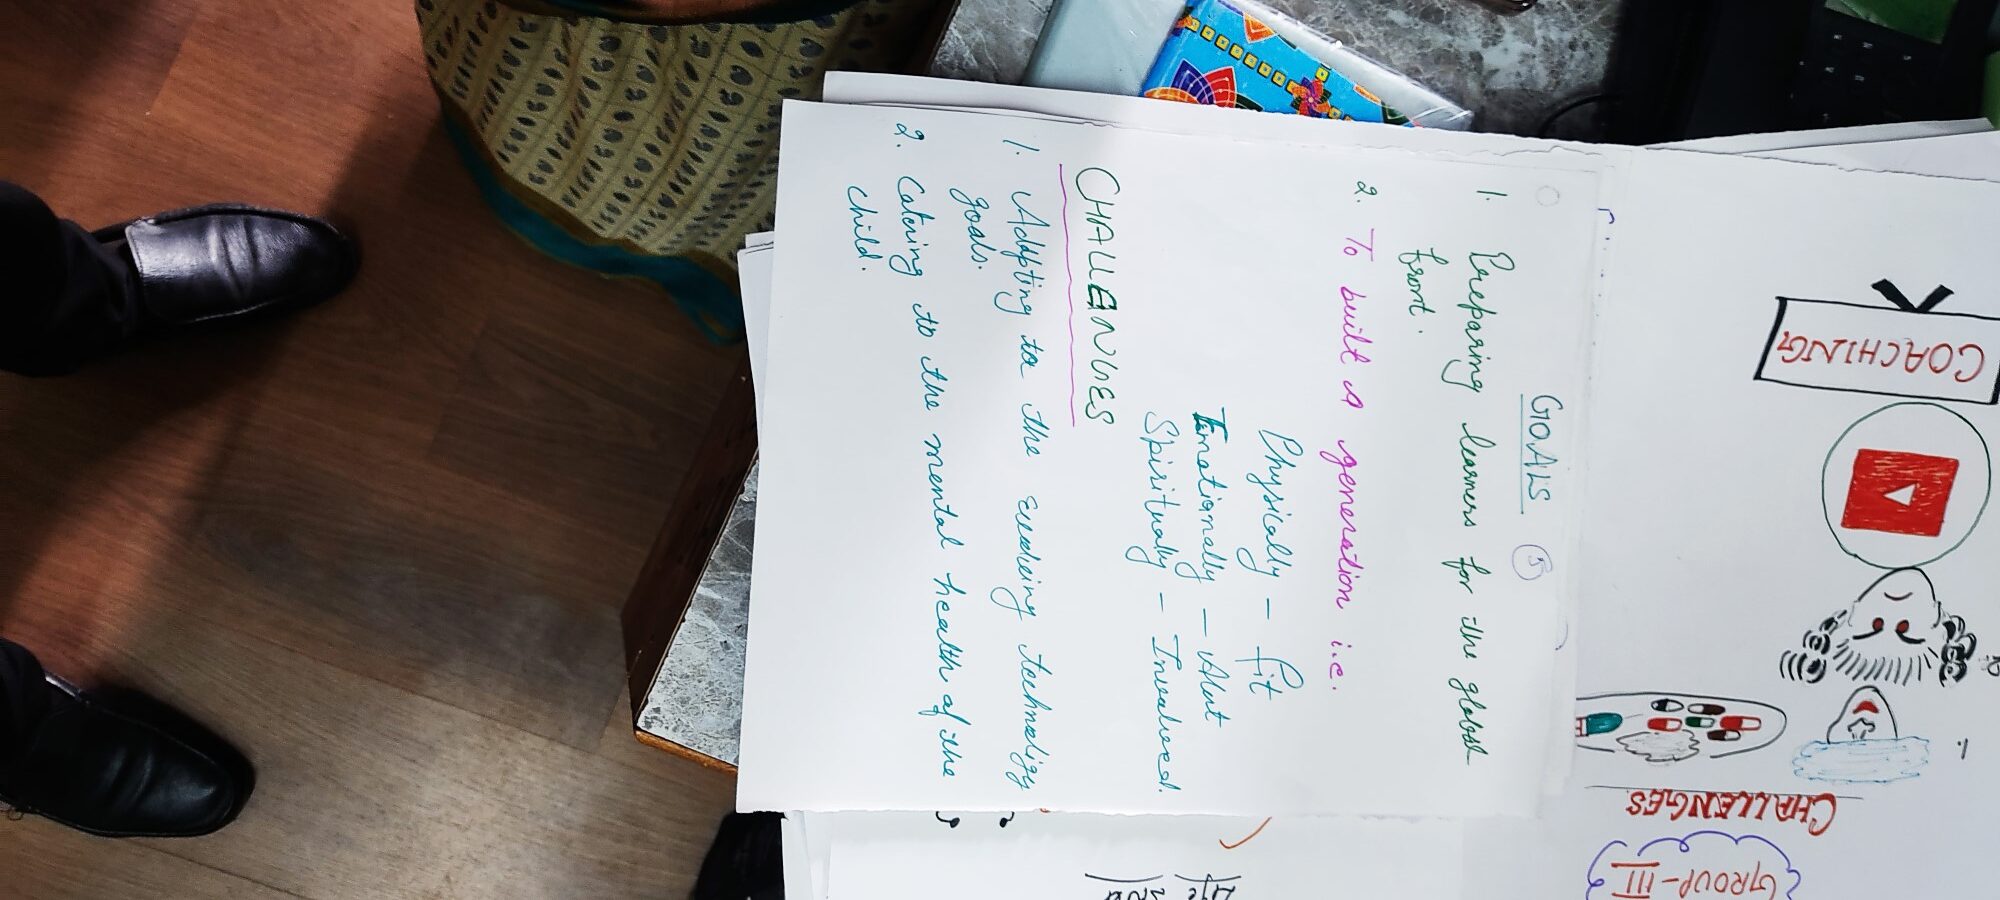 GOALS 5
1. Preparing learners for the global
front.
2. To built a generation i.e.
Physically – fit
Emotionally – Alert
Spiritually – Involved.
CHALLENGES
1. Adapting to the evolving technology
goals.
2. Catering to the mental health of the
child.
GROUP-III
CHALLENGES
1.
COACHING